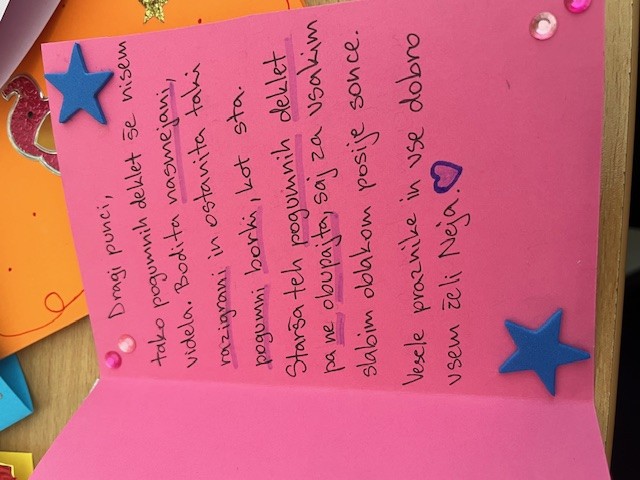 Dragi punci,
tako pogumnih deklet še nisem
videla. Bodita nasmejani,
razigrani in ostanita taki
pogumni borki, kot sta.
Starša teh pogumnih deklet
pa ne obupajta, saj za vsakim
slabim oblakom posije sonce.
Vesele praznike in vse dobro
vsem želi Neja.